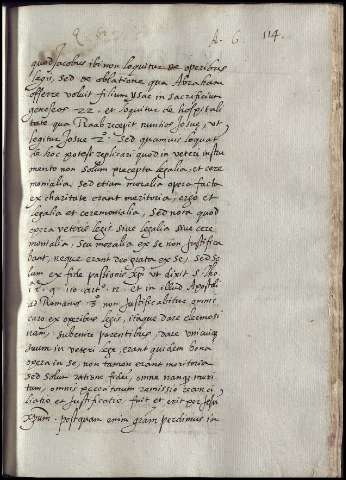 A. G. 114.
quod Jacobus ibi non loquitur de operibus
legis, sed de oblatione qua Abraham
offerre voluit filium Ysac in sacrificium
geneseos 22. et loquitur de hospitali
tate qua Raab recepit nuntios Josue, ut
legitur Josue 2º. Sed quamvis loquat
de hoc potest replicari quod in veteri instru
mento non solum præcepta legalia, et cere
monialia, sed etiam moralia opera facta
ex charitate erant meritoria, ergo et
legalia et ceremonialia, sed nota quod
opera veteris legis sive legalia sive cere
monialia, seu moralia ex se non justifica
bant, neque erant deo grata ex se, sed so
lum ex fide passionis Xpi ut dixit s. Tho.
et in illud Apostoli
ad Romanos 3º non justificabitur omnis
caro ex operibus legis, itaque dare eleemosi
nam, subvenire parentibus, dare unicuique
suum in veteri lege, erant quidem bona
opera in se, non tamen erant meritoria
sed solum ratione fidei, omne namque meri
tum, omnis peccatorum remissio reconci
liatio et justificatio fuit et erit per Jesum
Xpum. postquam enim gratiam perdimus in